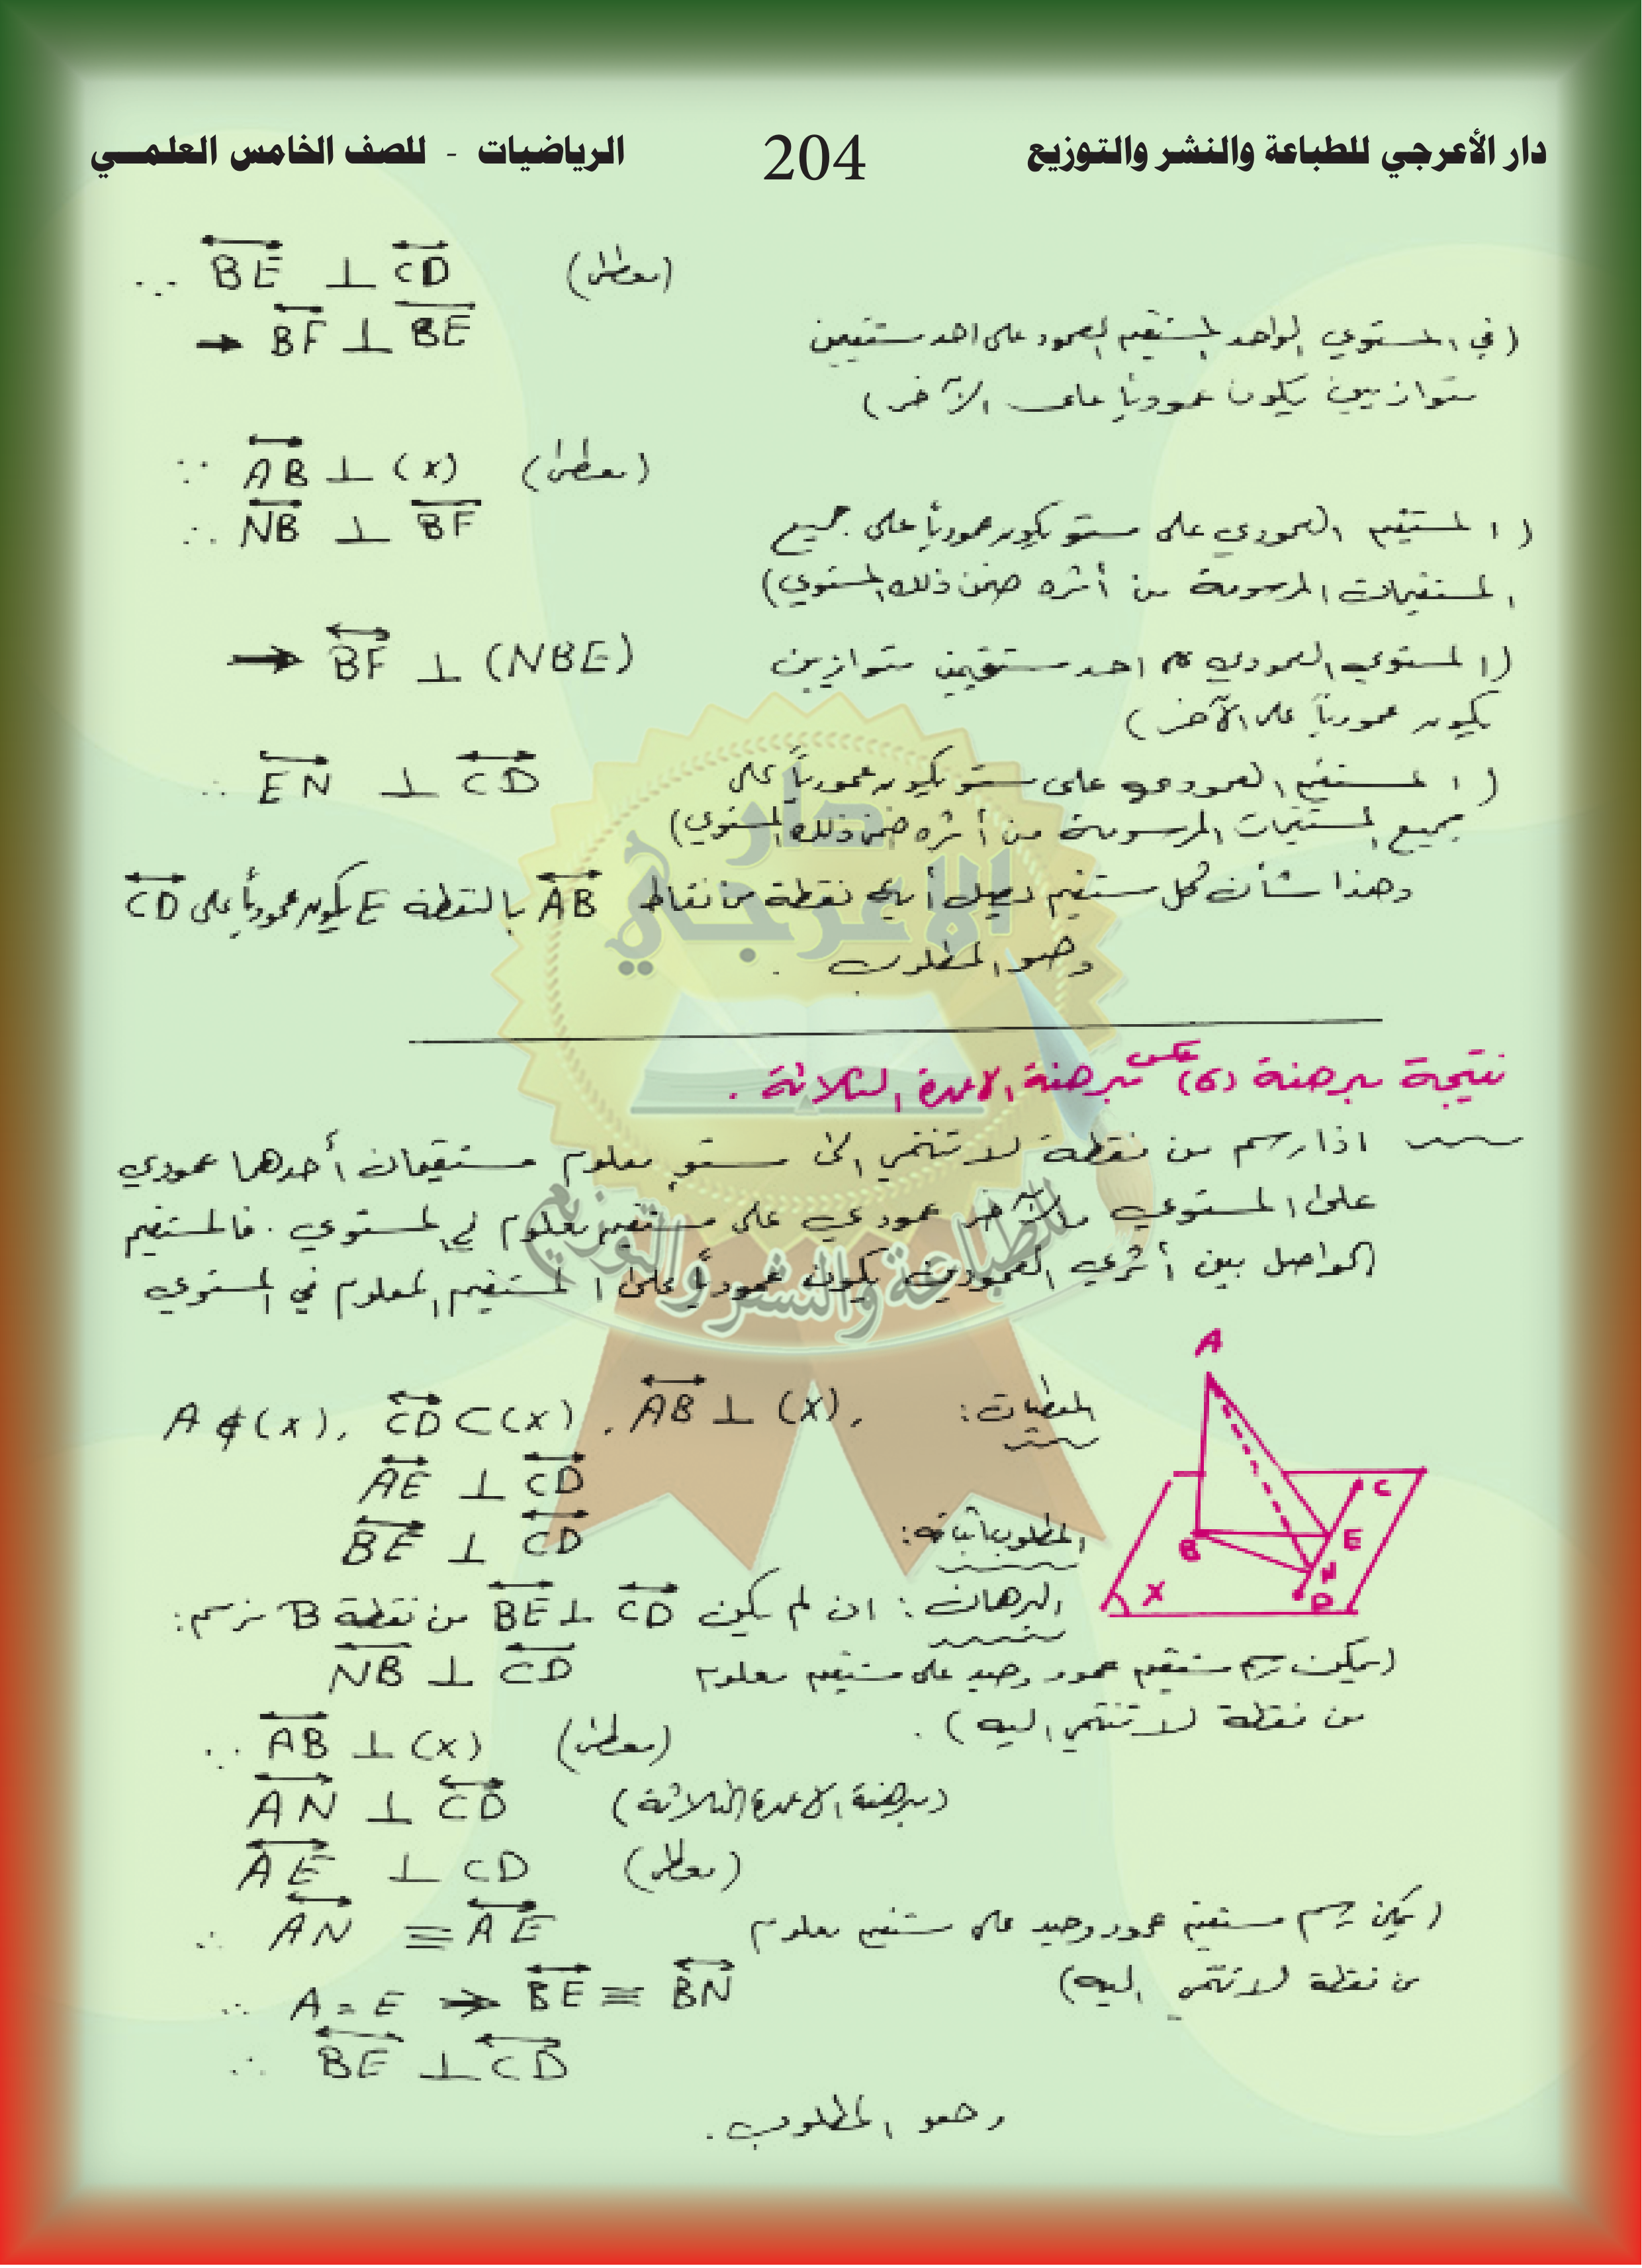 دار الأعرجي للطباعة والنشر والتوزيع 204 الرياضيات - للصف الخامس العلمي
∵ BE ⊥ CD (معطى)
→ BF ⊥ BE (في المستوي الواحد المستقيم العمود على احد مستقيمين
متوازيين يكون عمودياً على الآخر)
∵ AB ⊥ (X) (معطى)
∴ NB ⊥ BF (المستقيم العمودي على مستو يكون عمودياً على جميع
المستقيمات المرسومة من أثره ضمن ذلك المستوي)
→ BF ⊥ (NBE) (المستوي العمودي على احد مستقيمين متوازيين
يكون عمودياً على الآخر)
∴ EN ⊥ CD (المستقيم العمودي على مستو يكون عمودياً على
جميع المستقيمات المرسومة من أثره ضمن ذلك المستوي)
وهذا شأن كل مستقيم يصل أية نقطة من نقاط AB بالنقطة E يكون عمودياً على CD
وهو المطلوب .
نتيجة مبرهنة (6) عكس مبرهنة الاعمدة الثلاثة .
اذا رسم من نقطة لا تنتمي الى مستو معلوم مستقيمان أحدهما عمودي
على المستوي والآخر عمودي على مستقيم معلوم في المستوي . فالمستقيم
الواصل بين أثري العمودين يكون عمودياً على المستقيم المعلوم في المستوي
المعطيات: A ∉ (X), CD ⊂ (X), AB ⊥ (X),
AE ⊥ CD
المطلوب اثباته: BE ⊥ CD
A
C
B
E
N
D
X
البرهان : ان لم يكن BE ⊥ CD من نقطة B نرسم:
NB ⊥ CD (يمكن رسم مستقيم عمود وحيد على مستقيم معلوم
من نقطة لا تنتمي اليه) .
∵ AB ⊥ (X) (معطى)
AN ⊥ CD (مبرهنة الاعمدة الثلاثة)
AE ⊥ CD (معطى)
∴ AN ≡ AE (يمكن رسم مستقيم عمود وحيد على مستقيم معلوم
من نقطة لا تنتمي اليه)
∴ A = E → BE ≡ BN
∴ BE ⊥ CD
وهو المطلوب .
دار
الأعرجي
للطباعة والنشر والتوزيع